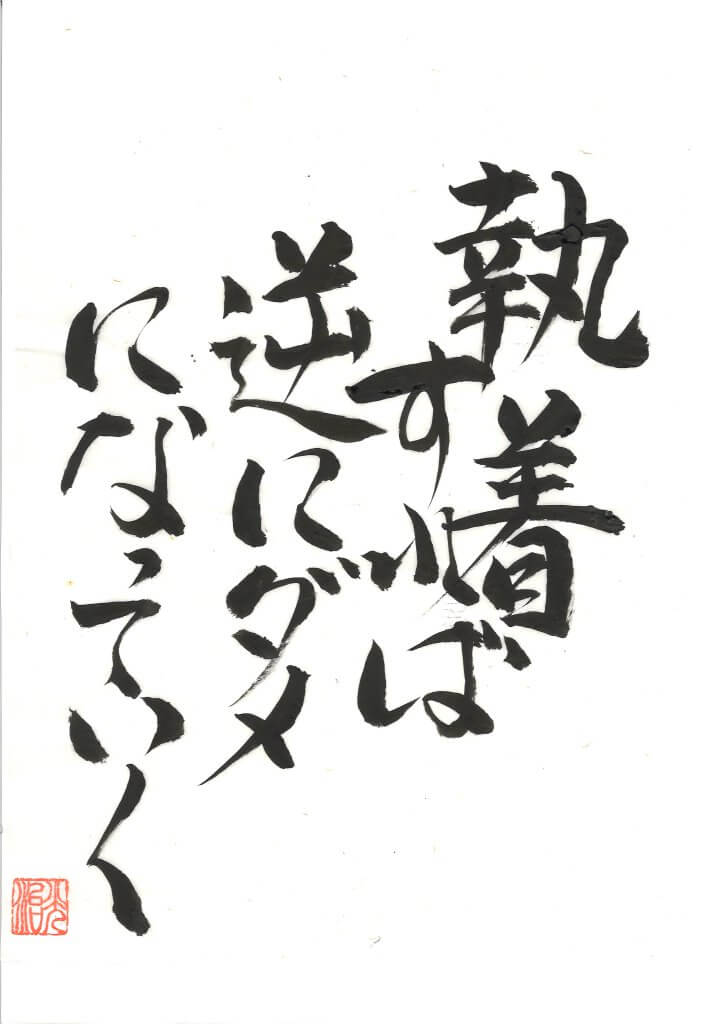 執着
すれば
逆にダメ
になっていく